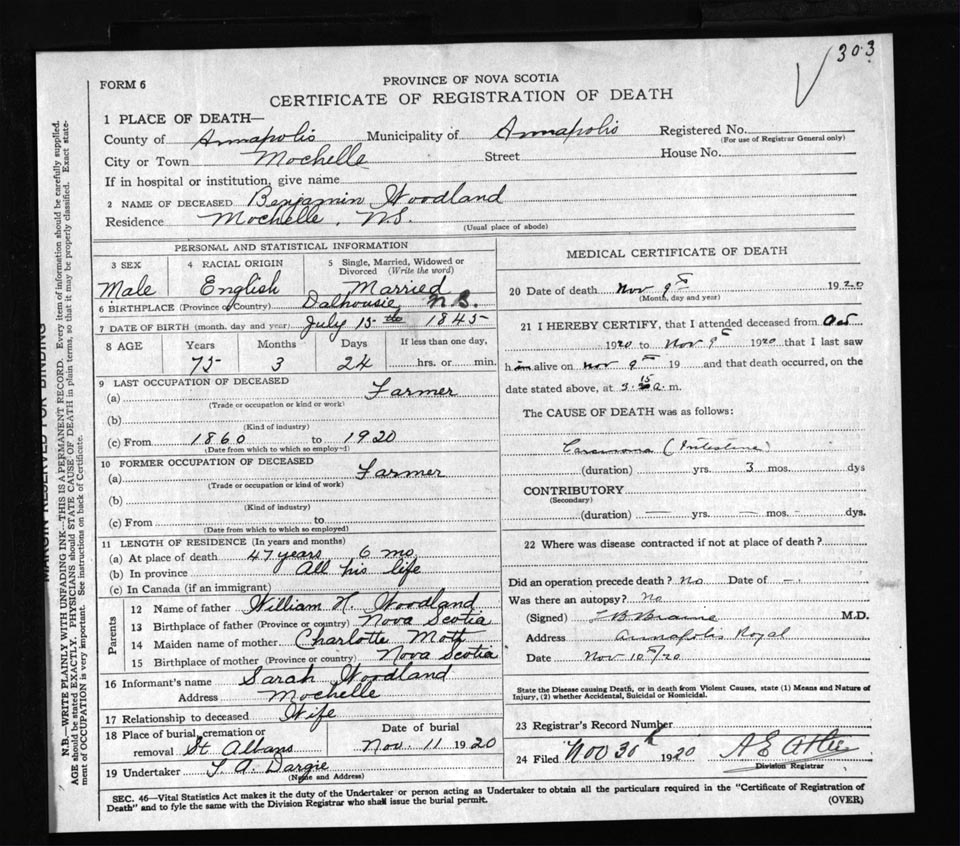 303
FORM 6
PROVINCE OF NOVA SCOTIA
CERTIFICATE OF REGISTRATION OF DEATH
1 PLACE OF DEATH—
County of Annapolis Municipality of Annapolis Registered No.
(For use of Registrar General only)
City or Town Mochelle Street House No.
If in hospital or institution, give name
2 NAME OF DECEASED Benjamin Woodland
Residence Mochelle, N.S.
(Usual place of abode)
PERSONAL AND STATISTICAL INFORMATION
3 SEX 4 RACIAL ORIGIN 5 Single, Married, Widowed or Divorced (Write the word)
Male English Married
6 BIRTHPLACE (Province or Country) Dalhousie N.S.
7 DATE OF BIRTH (month, day and year) July 15th 1845
8 AGE Years Months Days If less than one day,
75 3 24 hrs. or min.
9 LAST OCCUPATION OF DECEASED
(a) Farmer
(Trade or occupation or kind or work)
(b)
(Kind of industry)
(c) From 1860 to 1920
(Date from which to which so employed)
10 FORMER OCCUPATION OF DECEASED
(a) Farmer
(Trade or occupation or kind of work)
(b)
(Kind of industry)
(c) From to
(Date from which to which so employed)
11 LENGTH OF RESIDENCE (In years and months)
(a) At place of death 47 years 6 mo
(b) In province All his life
(c) In Canada (if an immigrant)
Parents
12 Name of father William H. Woodland
13 Birthplace of father (Province or country) Nova Scotia
14 Maiden name of mother Charlotte Moth
15 Birthplace of mother (Province or country) Nova Scotia
16 Informant's name Sarah Woodland
Address Mochelle
17 Relationship to deceased Wife
18 Place of burial, cremation or Date of burial
removal St Albans Nov. 11 1920
19 Undertaker A. Dargie
(Name and Address)
MEDICAL CERTIFICATE OF DEATH
20 Date of death Nov 9th 1920
(Month, day and year)
21 I HEREBY CERTIFY, that I attended deceased from Oct
1920 to Nov 9th 1920 that I last saw
him alive on Nov 9th 19 and that death occurred, on the
date stated above, at 3.15 a.m.
The CAUSE OF DEATH was as follows:
Carcinoma (Intestine)
(duration) yrs. 3 mos. dys
CONTRIBUTORY
(Secondary)
(duration) — yrs. — mos. - dys.
22 Where was disease contracted if not at place of death?
Did an operation precede death? No Date of —
Was there an autopsy? No
(Signed) Braine M.D.
Address Annapolis Royal
Date Nov 10th/20
State the Disease causing Death, or in death from Violent Causes, state (1) Means and Nature of
Injury, (2) whether Accidental, Suicidal or Homicidal.
23 Registrar's Record Number
24 Filed Nov 30th 1920
Division Registrar
SEC. 46—Vital Statistics Act makes it the duty of the Undertaker or person acting as Undertaker to obtain all the particulars required in the "Certificate of Registration of
Death" and to fyle the same with the Division Registrar who shall issue the burial permit.
(OVER)
MARGIN RESERVED FOR BINDING
N.B.—WRITE PLAINLY WITH UNFADING INK—THIS IS A PERMANENT RECORD. Every item of information should be carefully supplied.
AGE should be stated EXACTLY. PHYSICIANS should STATE CAUSE OF DEATH in plain terms, so that it may be properly classified. Exact state-
ment of OCCUPATION is very important. See instructions on back of Certificate.